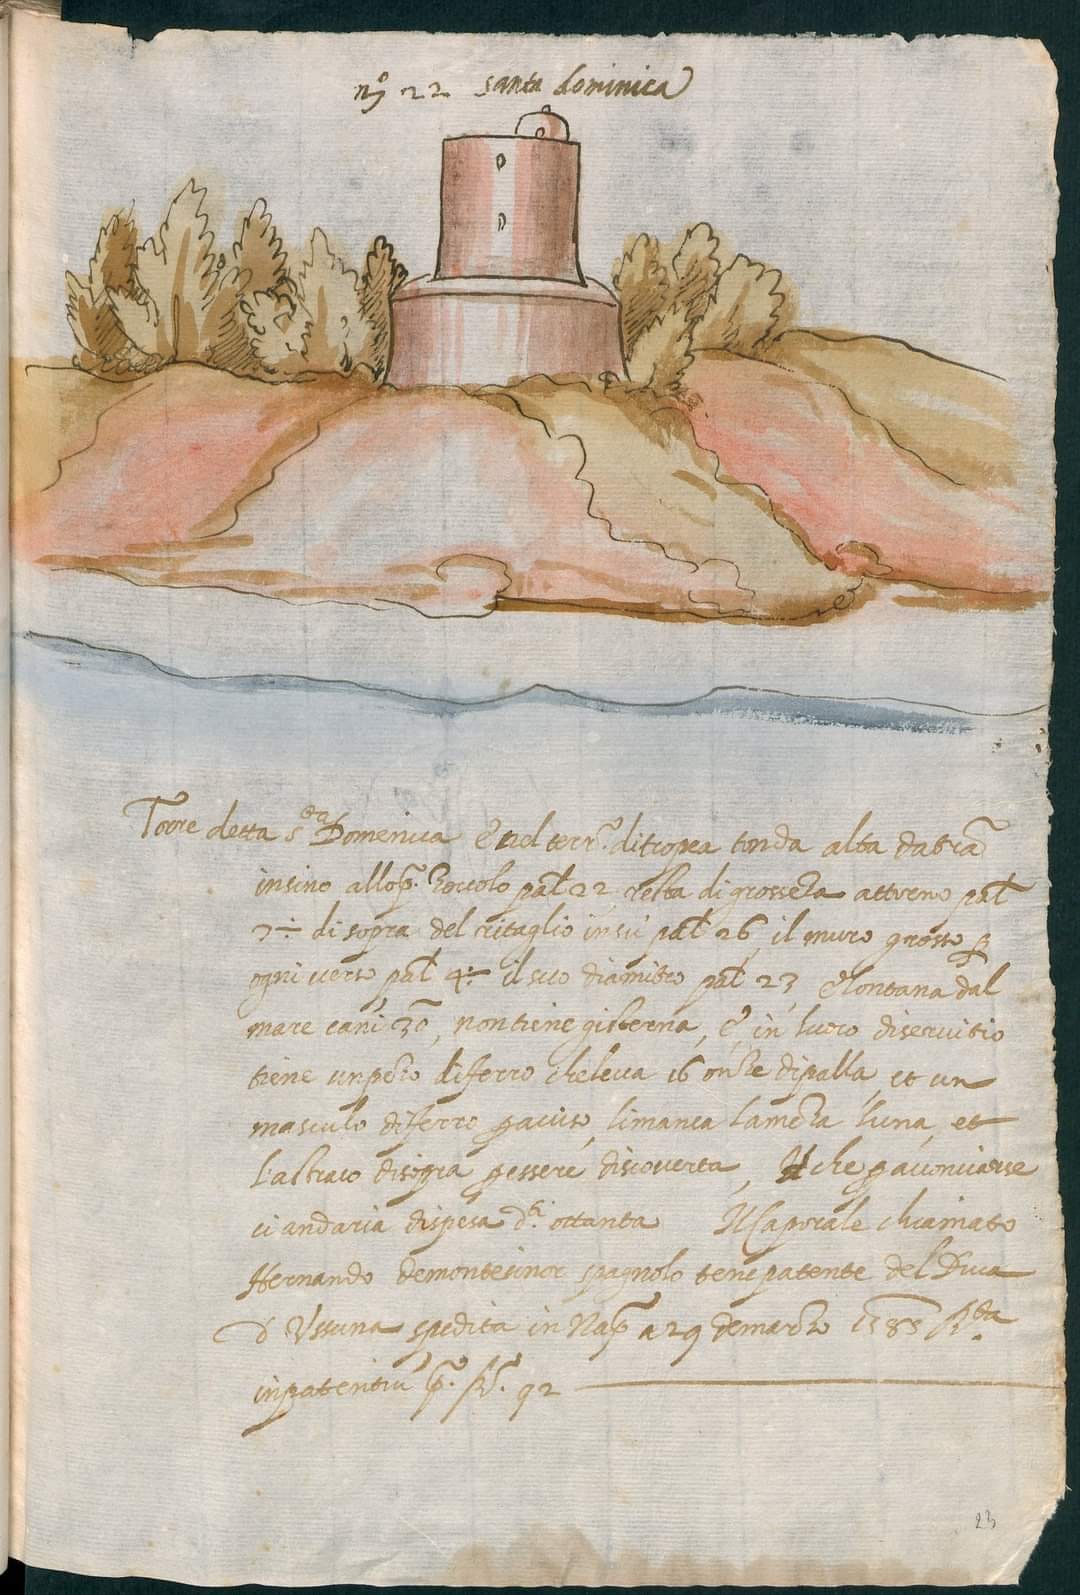 nº 22 santa dominica
Torre detta Sta Domenica è nel terr.º di tropea tonda alta da
insino allo p.º Zoccolo pal 22 resta di grossezza attorno pal
7 ÷ di sopra del ritaglio in sù pal 26, il muro grosso p
ogni verso pal 4 ÷ il suo diamitro pal 23, è lontana dal
mare canī 30, non tiene gisterna, è in luoco di servitio
tiene un pezo di ferro che leva 16 onze di palla, et un
masculo di ferro li manca la meza luna, et
l'astraco di sopra p essere discoverta, Il che p acconciarse
ci andaria dispesa d.ti ottanta Il Caporale chiamato
Hernando de montesinor spagnolo tene patente del Duca
d'Ussuna spedita in Nap a 29 de marzo 1585 R.ta
in patentiū p.º fol. 92
23